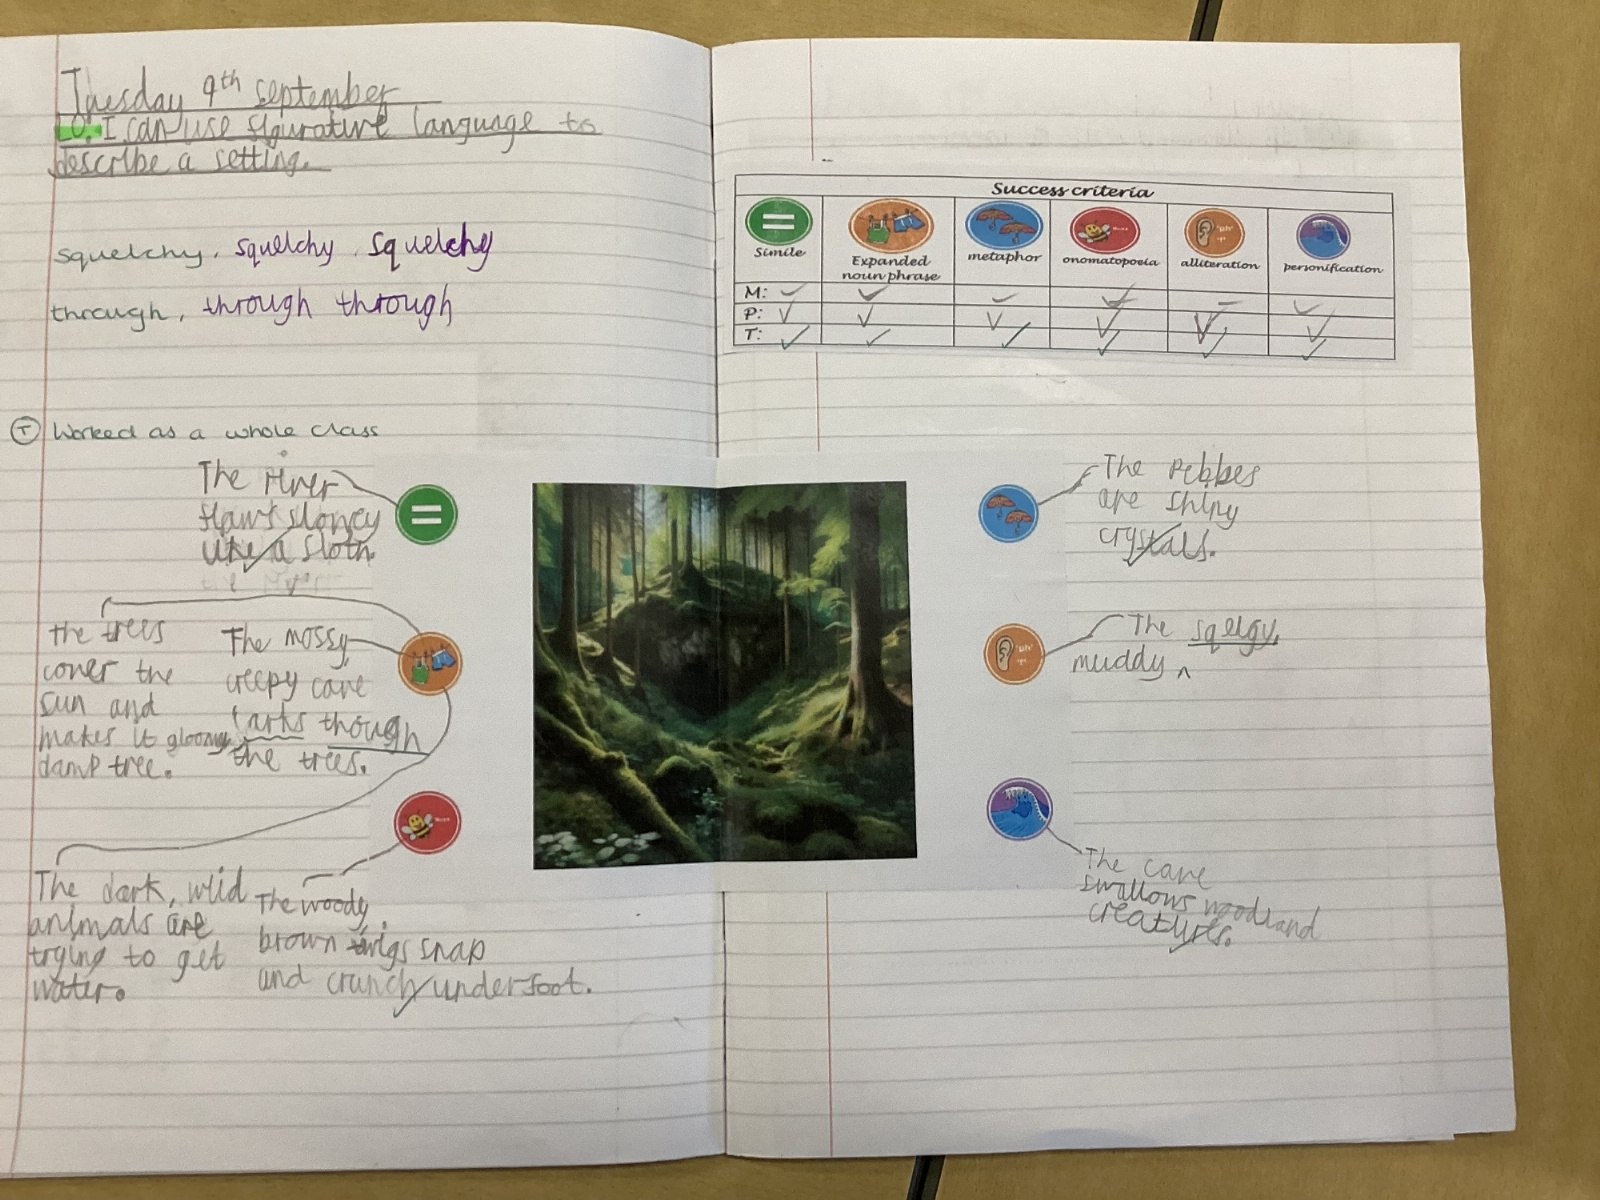 Tuesday 9th september
LO. I can use figurative language to
describe a setting.
squelchy, squelchy, squelchy
through, through through
T Worked as a whole class
The river
flows slowey
like a sloth.
the trees
cover the
sun and
makes it gloomy
damp tree.
The mossy,
creepy cave
larks though
the trees.
The dark, wild
animals are
trying to get
water.
The woody,
brown twigs snap
and crunch underfoot.
Success criteria
Simile
Expanded
noun phrase
metaphor
onomatopoeia
alliteration
personification
M:
P:
T:
The Pebbes
are shiny
crystals.
The sqelgy,
muddy
The cave
swallows woodland
creatures.